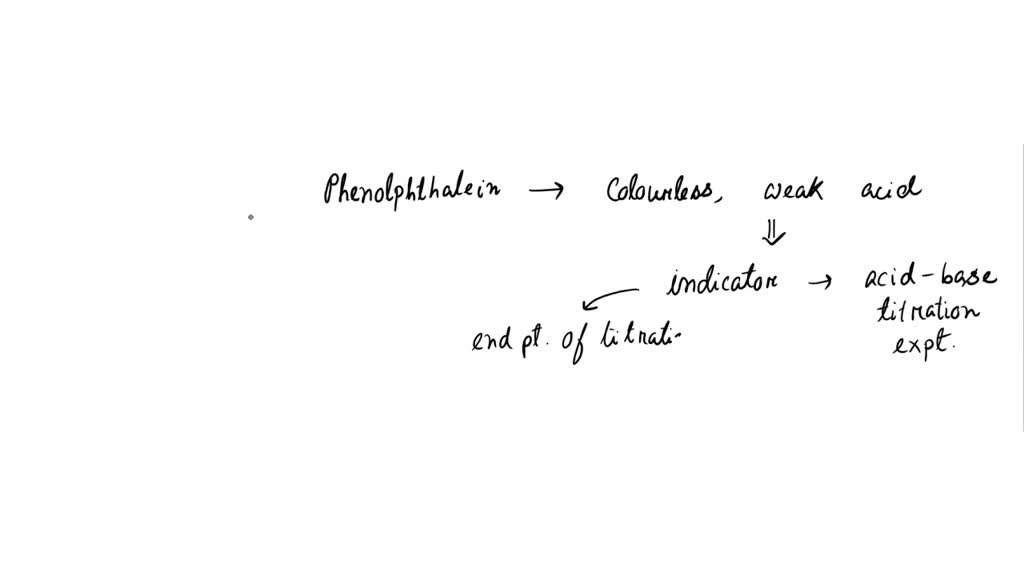 Phenolphthalein → Colourless, weak acid
⇓
indicator → acid-base
titration
expt.
end pt. of titrati